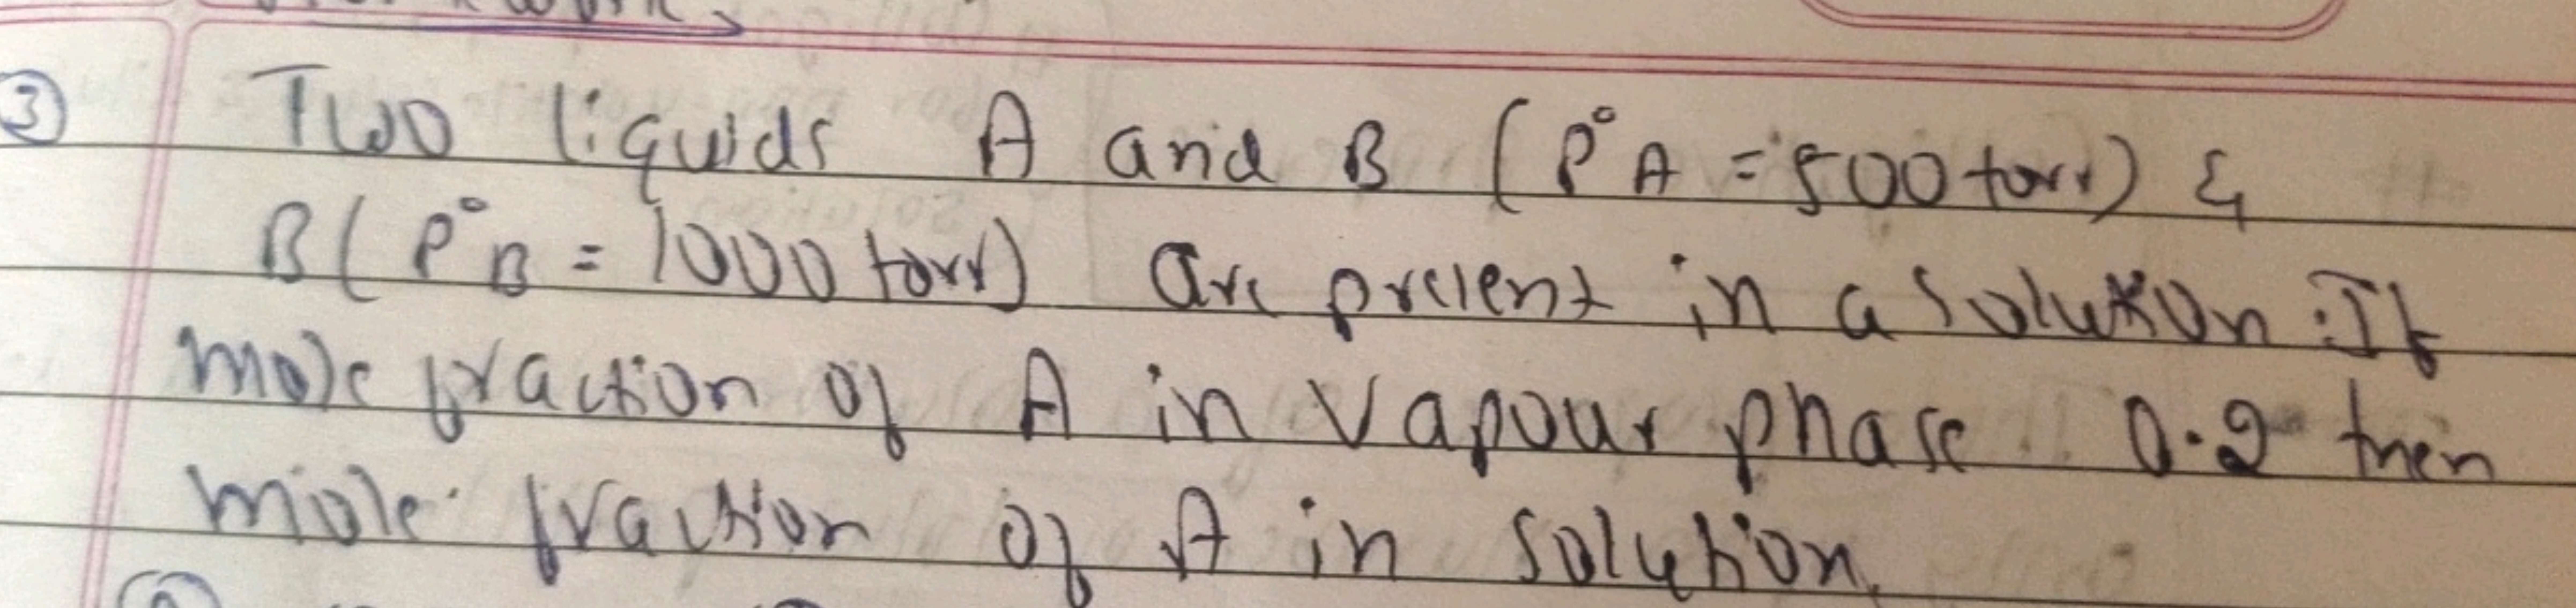 ③ Two liquids A and B (P°A = 500 torr) &
B (P°B = 1000 torr) are present in a solution. If
mole fraction of A in Vapour phase 0.2 then
mole fraction of A in solution.